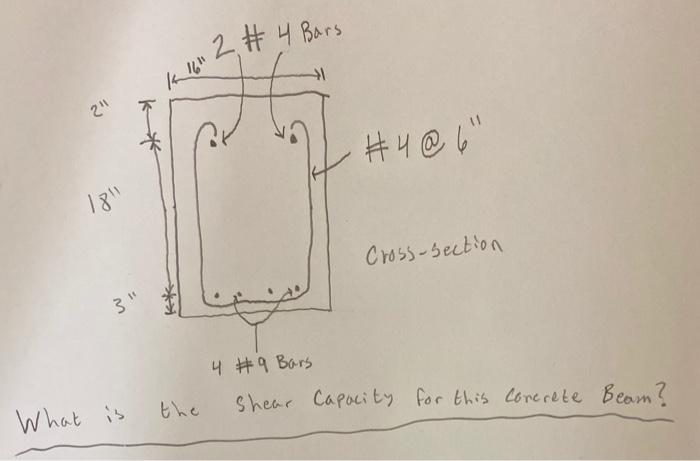 2 # 4 Bars
16"
2"
# 4 @ 6"
18"
Cross-section
3"
4 #9 Bars
What is the Shear Capacity for this Concrete Beam?